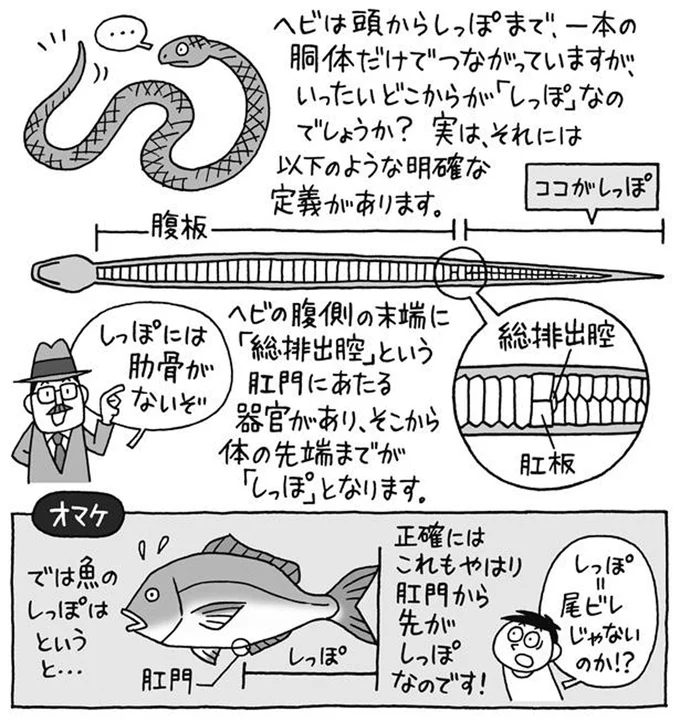 …
ヘビは頭からしっぽまで、一本の
胴体だけでつながっていますが、
いったいどこからが「しっぽ」なの
でしょうか？ 実は、それには
以下のような明確な
定義があります。
ココがしっぽ
腹板
しっぽには
肋骨が
ないぞ
ヘビの腹側の末端に
「総排出腔」という
肛門にあたる
器官があり、そこから
体の先端までが
「しっぽ」となります。
総排出腔
肛板
オマケ
では魚の
しっぽは
という
と…
肛門
しっぽ
正確には
これもやはり
肛門から
先が
しっぽ
なのです！
しっぽ
＝
尾ビレ
じゃない
のか！？